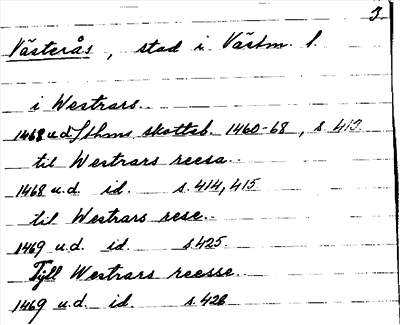 3
Västerås, stad i Västm. l.
i Westrars.
1468 u.d. Sthms skottsb. 1460-68, s. 413
til Westrars reesa.
1468 u.d. id. s. 414, 415
til Westrars rese.
1469 u.d. id. s 425.
Tyll Westrars reesse.
1469 u.d. id. s. 426